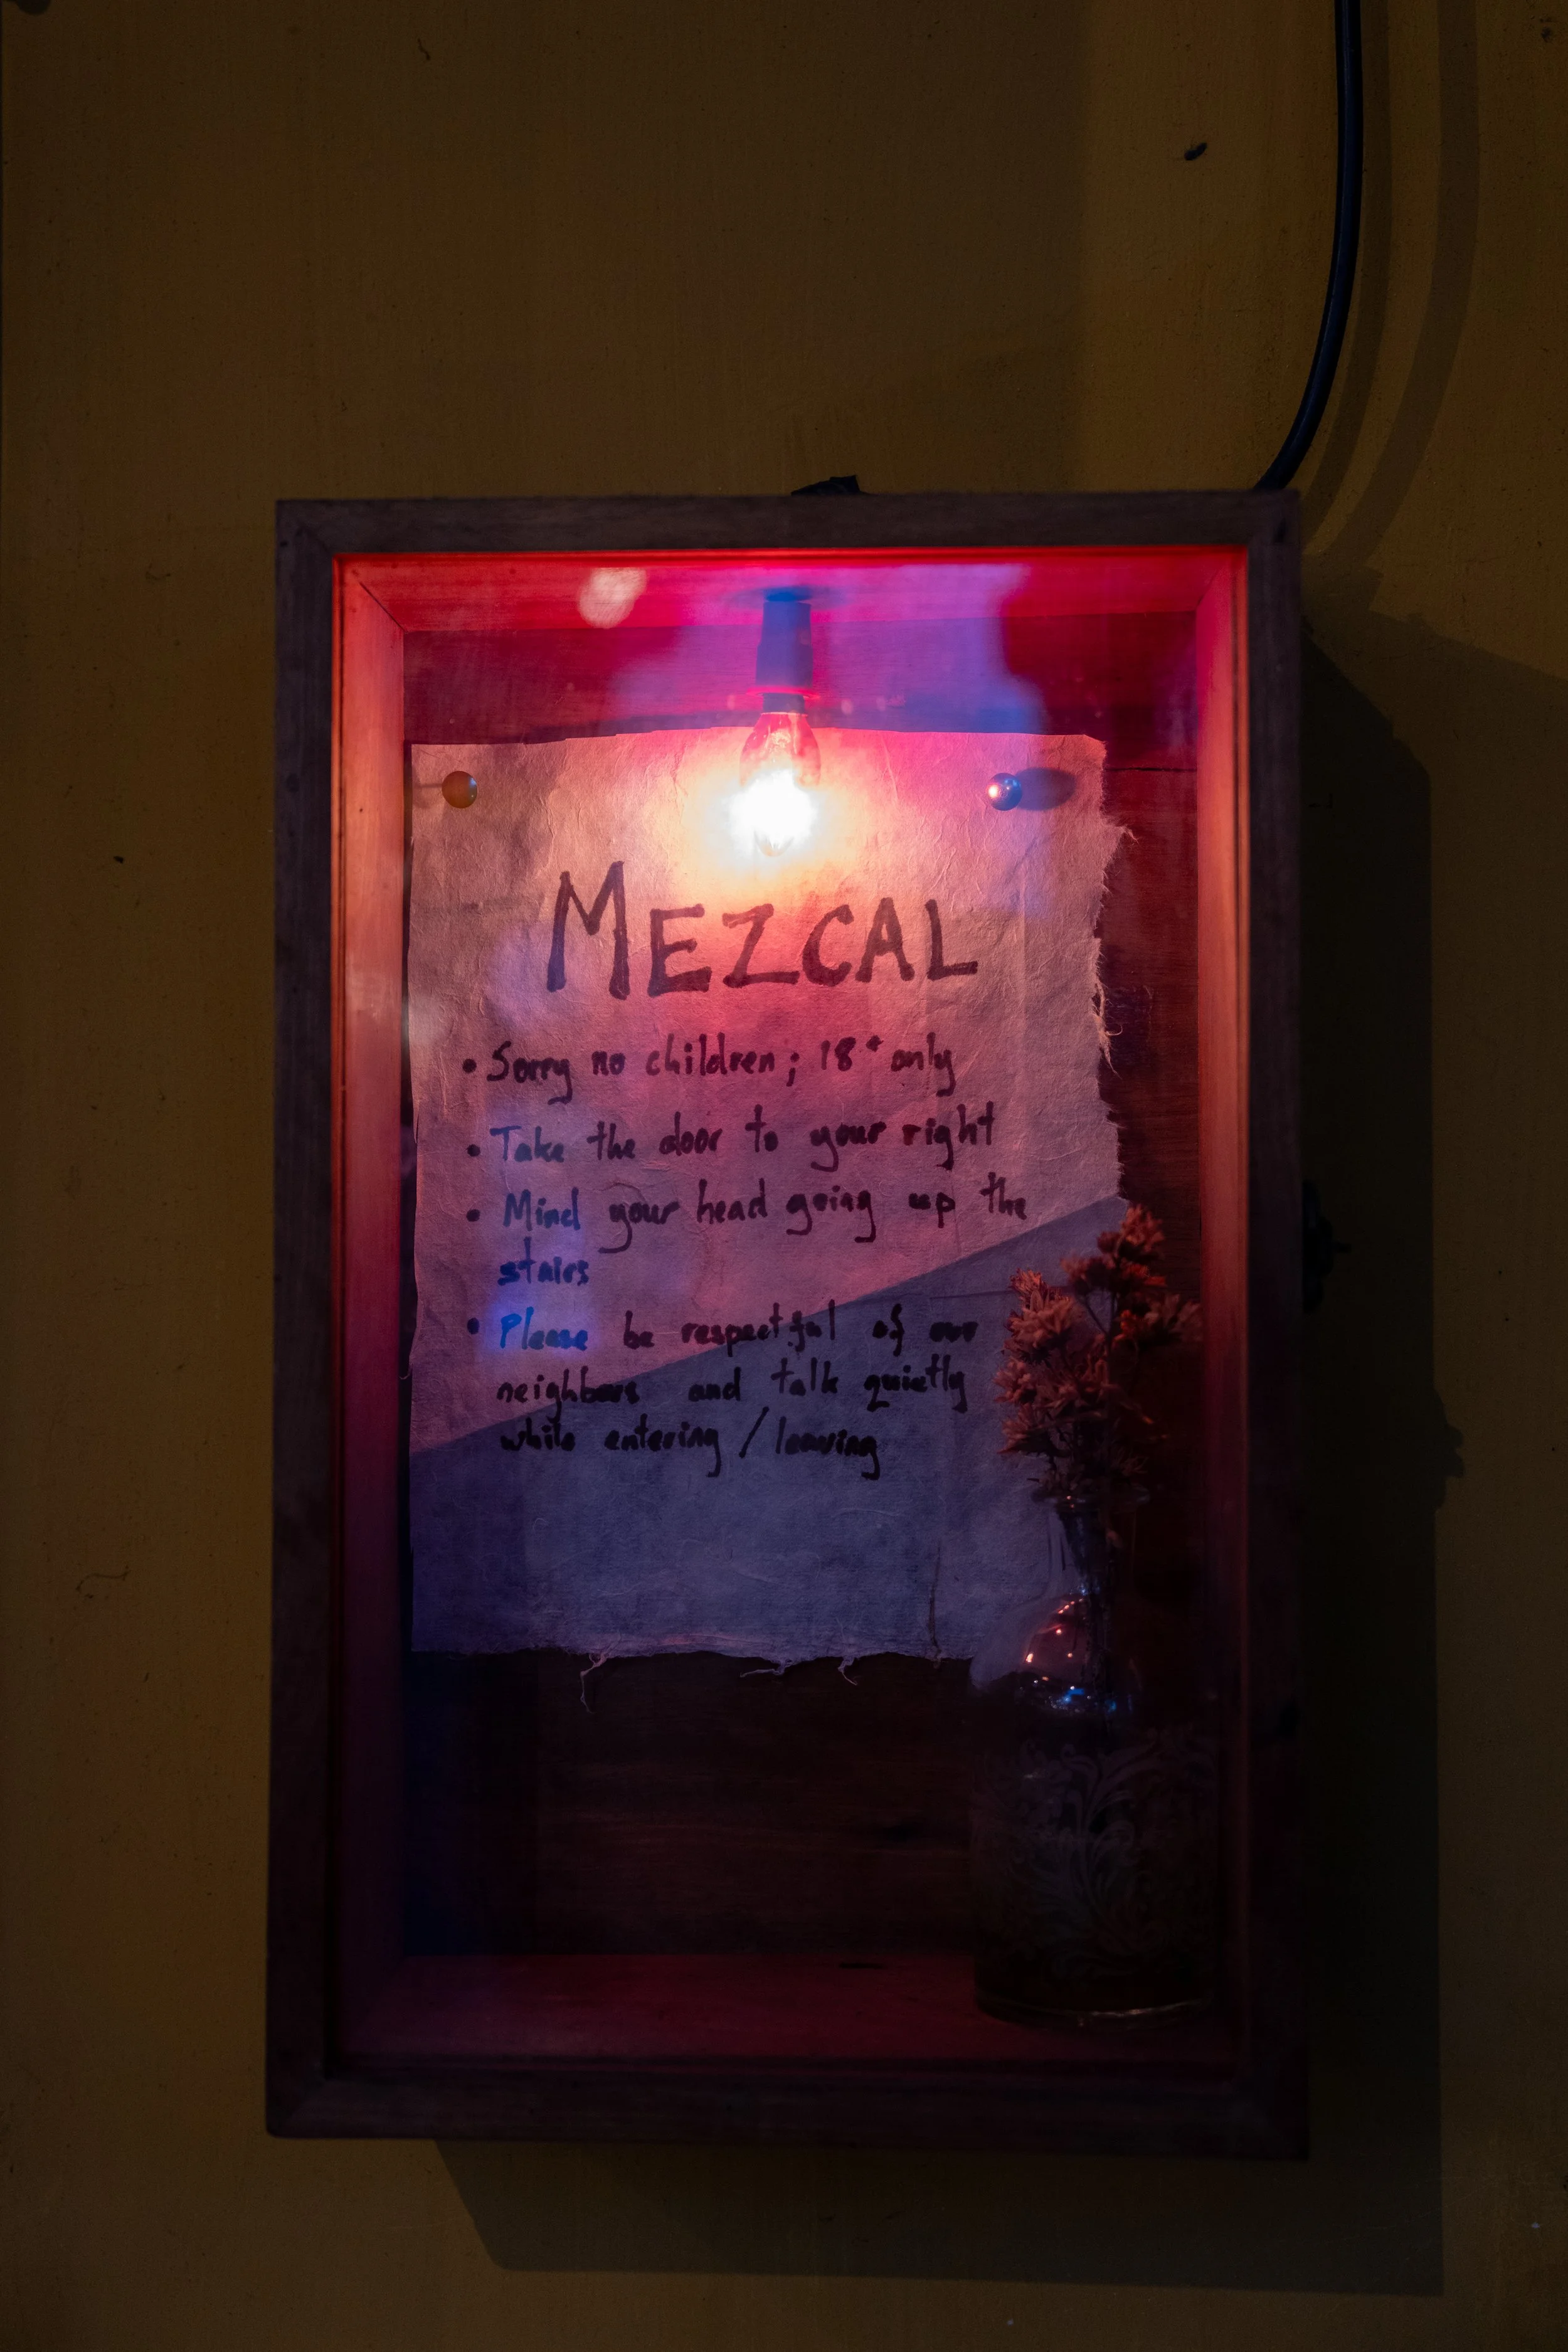 MEZCAL
• Sorry no children; 18+ only
• Take the door to your right
• Mind your head going up the
stairs
• Please be respectful of our
neighbors and talk quietly
while entering / leaving